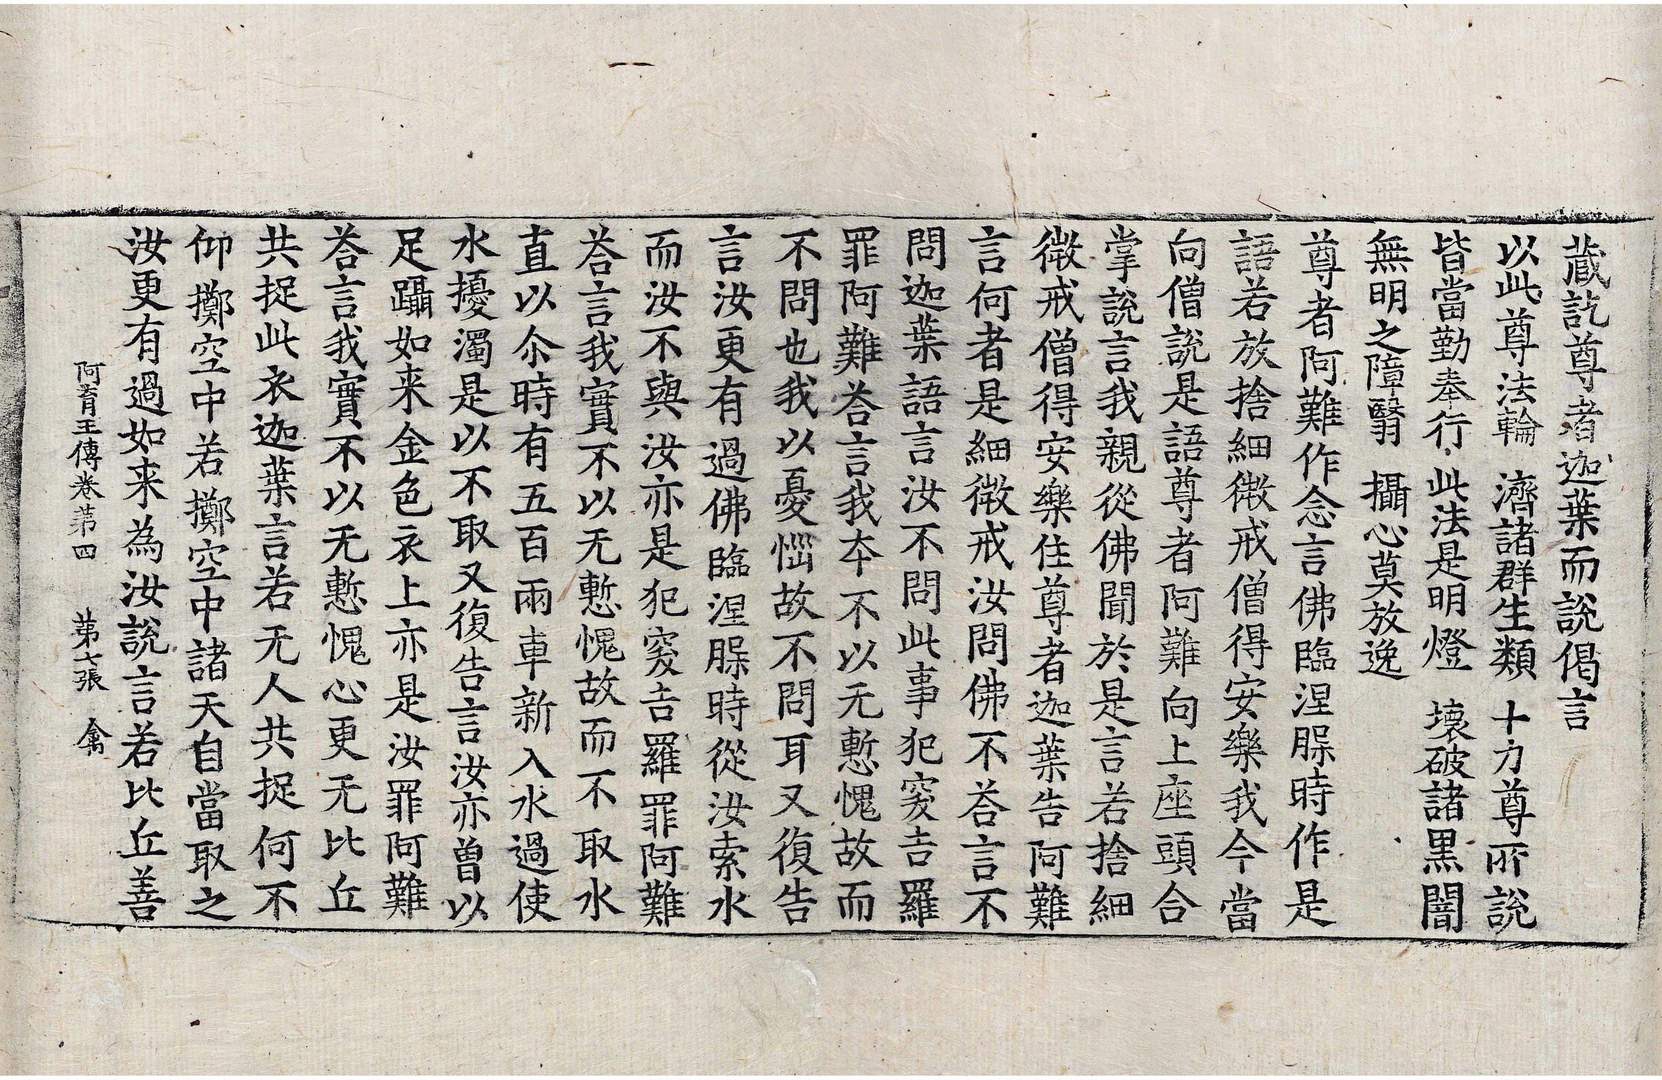 蔵訖尊者迦葉而說偈言
以此尊法輪 濟諸群生類 十力尊所說
皆當勤奉行 此法是明燈 壞破諸黒闇
無明之障翳 攝心莫放逸
尊者阿難作念言佛臨涅𦙁時作是
語若放捨細微戒僧得安樂我今當
向僧說是語尊者阿難向上座頭合
掌說言我親從佛聞於是言若捨細
微戒僧得安樂住尊者迦葉告阿難
言何者是細微戒汝問佛不荅言不
問迦葉語言汝不問此事犯突吉羅
罪阿難荅言我夲不以无慙愧故而
不問也我以憂惱故不問耳又復告
言汝更有過佛臨涅𦙁時從汝索水
而汝不與汝亦是犯突吉羅罪阿難
荅言我實不以无慙愧故而不取水
直以尒時有五百兩車新入水過使
水擾濁是以不取又復告言汝亦曽以
足躡如来金色衣上亦是汝罪阿難
荅言我實不以无慙愧心更无比丘
共捉此衣迦葉言若无人共捉何不
仰擲空中若擲空中諸天自當取之
汝更有過如来為汝說言若比丘善
阿育王傳卷苐四 苐七張 禽